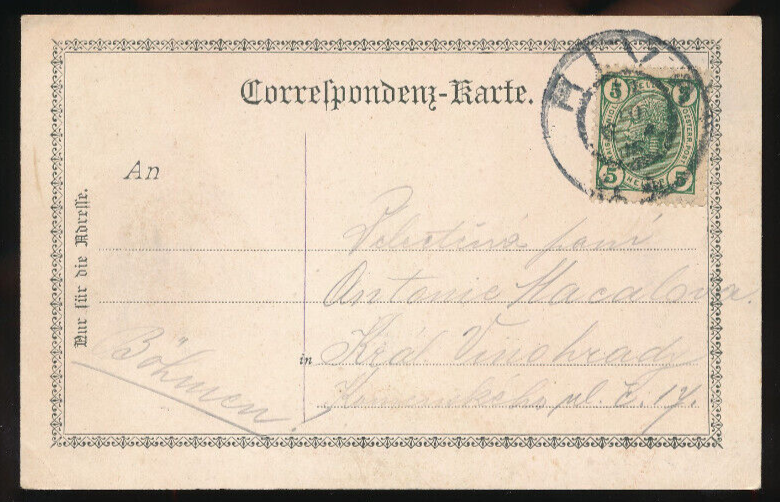 Correspondenz-Karte.
An
Nur für die Adresse.
Velectěná paní
Antonie Macalova.
in Král. Vinohrady
Komenského ul. č. 17.
Böhmen!
5 5
5 5